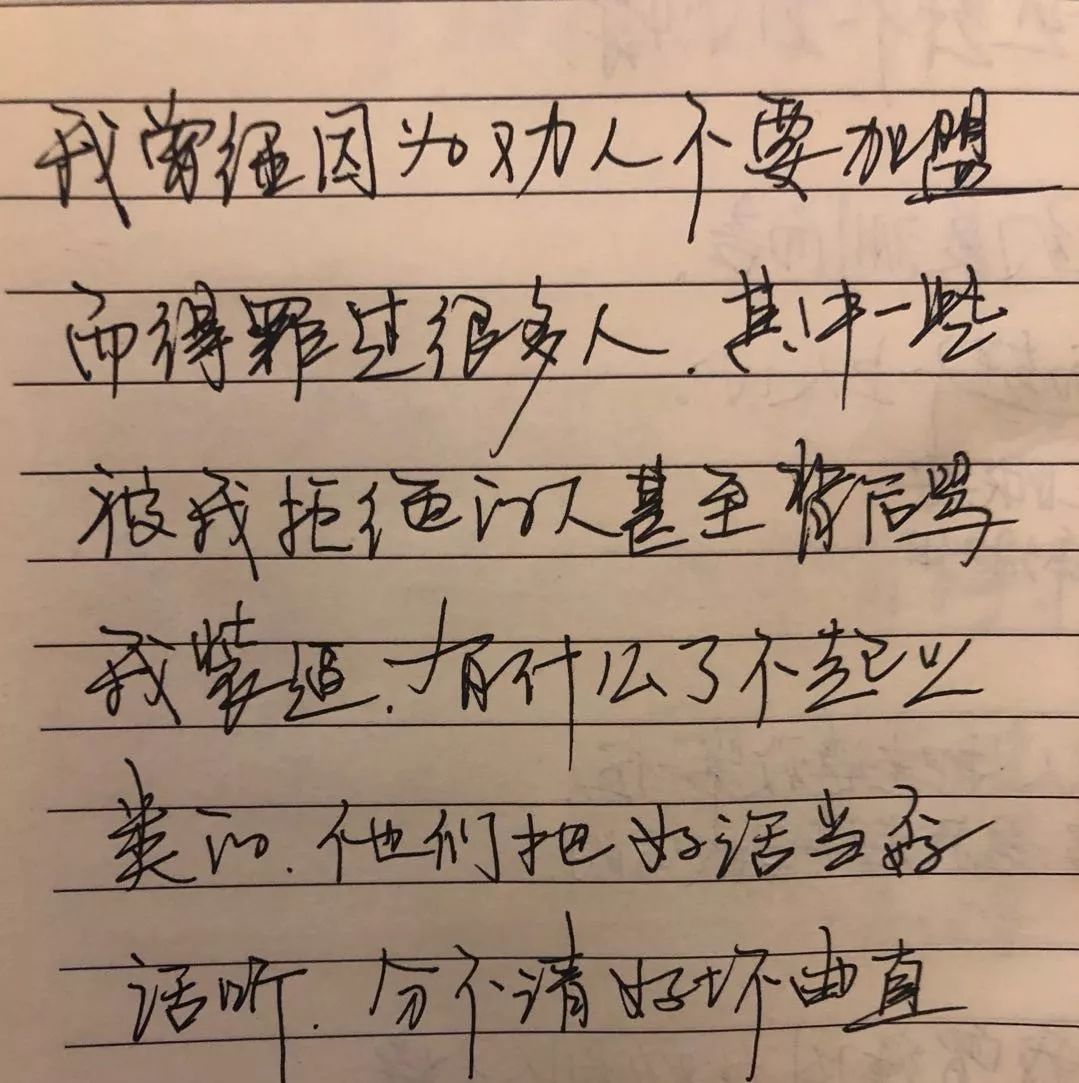 我曾经因为劝人不要加盟
而得罪过很多人.其中一些
被我拒绝的人甚至背后骂
我装逼.有什么了不起之
类的.他们把好话当歹
话听.分不清好坏曲直